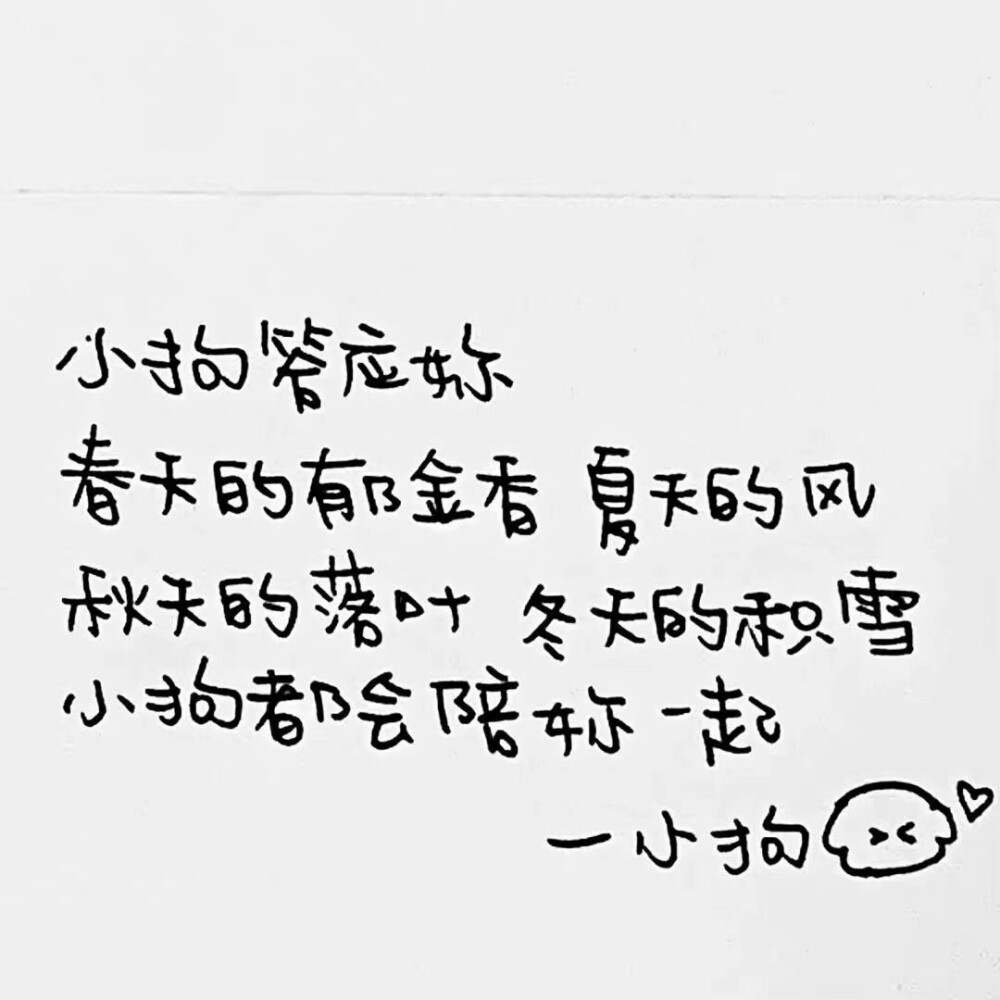 小狗答应妳
春天的郁金香 夏天的风
秋天的落叶 冬天的积雪
小狗都会陪妳一起
一小狗